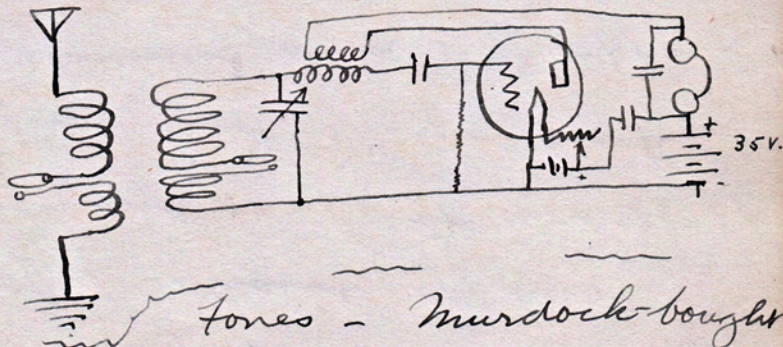 35 V.
Fones - Murdock-bought